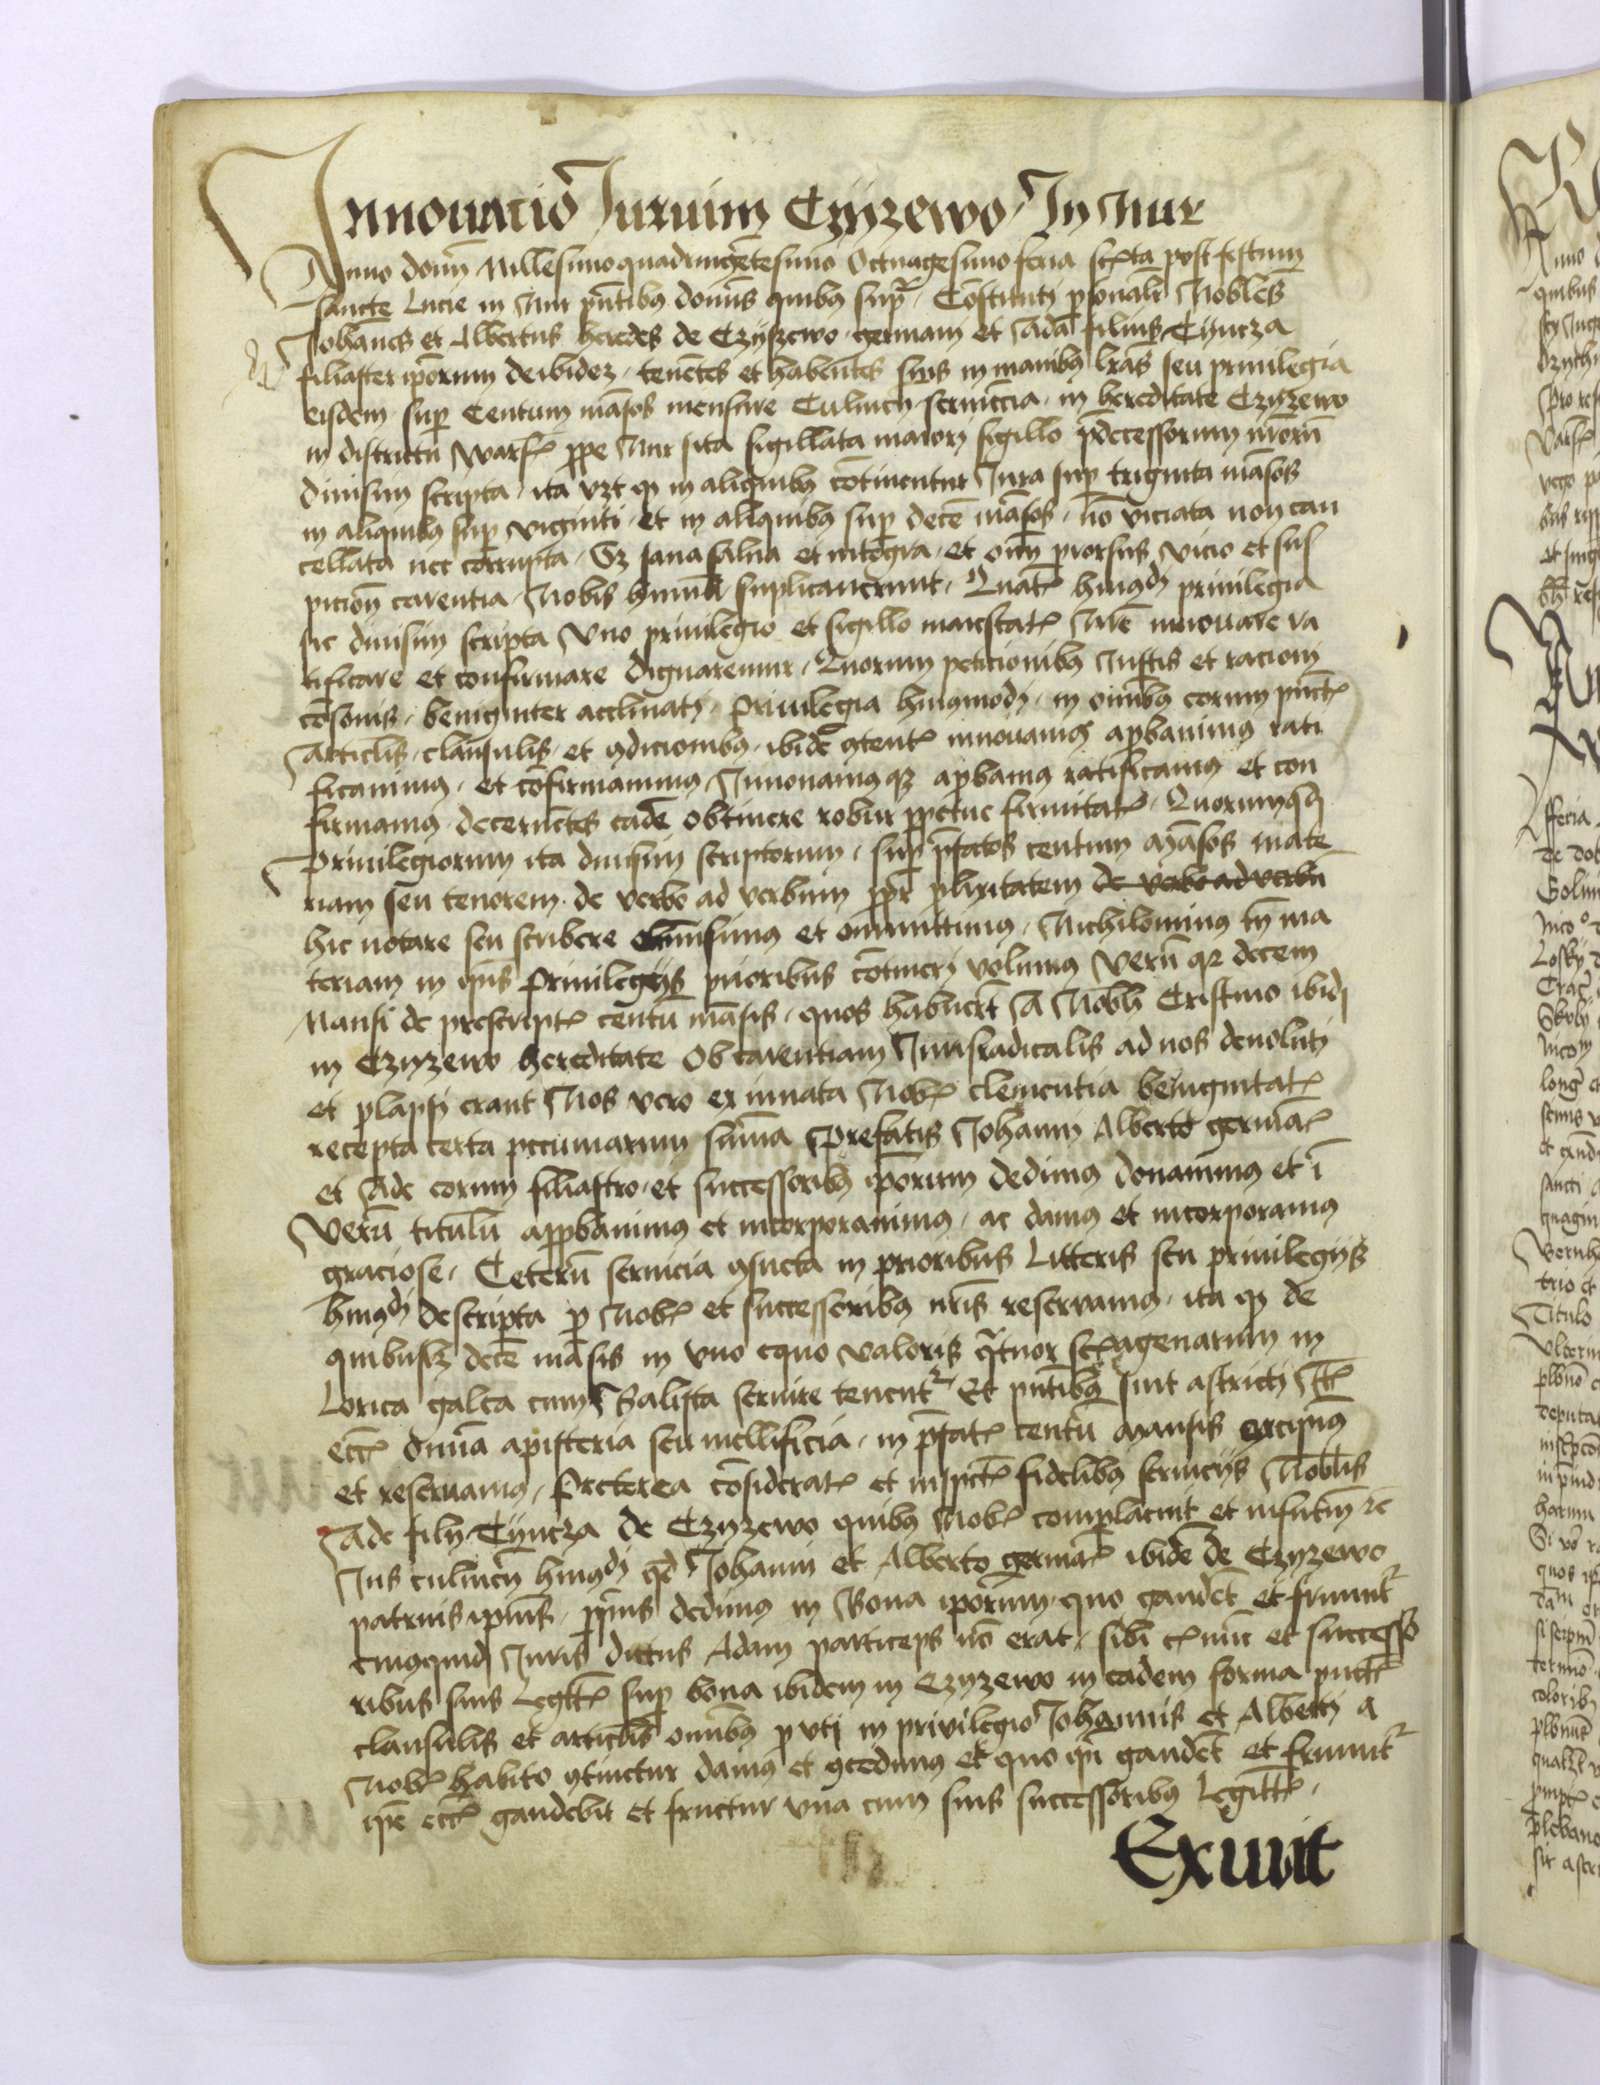 Innouatio Iurium Czyzewo In Nur
Anno domi Millesimo quadringetesimo Octuagesimo feria sexta post festum
sancte Lucie in Nur pntibus dominis quibus supra Costituti psonalr Nobles
Johanes et Albertus heredes de Czyszewo germani et Adam filius Tyncza
filiaster iporum deibidez tenetes et habentes suis in manibus lras seu priuilegia
eisdem sup Centum masos mensure Culmen seruiccia in hereditate Czyzewo
in districtu Wars ppe Nur sita sigillata maiori sigillo pdecessorum nrorum
diuisim scripta ita vzt q in aliquibus cotinentur Jura sup triginta masos
in aliquibus sup viginti et in aliquibus sup dece masos no viciata non can
cellata nec corrupta Sz sana salua et integra et omi prorsus vicio et sus
picion carentia Nobis humil suplicauerunt Quate huiusdi priuilegia
sic diuisim scripta Vno priuilegio et sigillo maiestatis Nre innouare ra
tificare et confirmare dignaremur Quorum peticionibus Justis et racioni
cosonis benigniter acclinati Priuilegia huiusmodi in omibus eorum punctis
Articulis clausulis et condicionibus ibide contentis innouauimus apbauimus rati
ficauimus et cofirmauimus Innouamusque apbamus ratificamus et con
firmamus decernetes eade obtinere robur ppetue firmitatis Quorumquidem
Priuilegiorum ita diuisim scriptorum sup pfatos centum Masos mate
riam seu tenorem de verbo ad verbum ppr plixitatem de verbo ad verbu
hic notare seu scribere obmisimus et omittimus Nichilominus tn ma
teriam in ipsis Priuilegys prioribus cotineri volumus Veru quia decem
Mansi de prescriptis centu masis quos habuert A Nobli Cristino ibid
in Czyzewo hereditate Ob carentiam Jurisradicalis ad nos deuoluti
et plapsi erant Nos vero ex innata Nobis clementia benignitatis
recepta certa pecuniarum suma Prefatis Johanni Alberto germais
et Ade eorum filiastro et successoribus iporum dedimus donauimus et i
Veru titulu appbauimus et incorporauimus ac damus et incorporamus
graciose Ceteru seruicia consueta in prioribus Litteris seu priuilegys
huiusdi descripta p Nobis et successoribus nris reseruamus ita q de
quibuslz dece masis in vno equo valoris quatuor sexagenarum in
Lorica galea cum Balista seruire tenentur Et pntibus sint astricti
eciam omnia apisteria seu mellificia in pfatis centu Mansis excipimus
et reseruamus Preterea cosideratis et inspectis fidelibus seruicys Noblis
Ade fily Tyncza de Czyzewo quibus Nobis complacuit et infutur
Jus culmen huiusdi qd Johanni et Alberto germais ibide de Czyzewo
patruis ipius prius dedimus in Bona iporum quo gaudet et fruuntur
cuiusquid Juris dictus Adam particeps no erat sibi nuc et successo
ribus suis Legittis sup bona ibidem in Czyzewo in eadem forma punctis
clausulis et articulis omibus prvti in priuilegio Johannis et Alberti a
Nobis habito continetur damus et concedimus et quo ipi gaudet et fruuntur
ipe eciam gaudebit et fruetur vna cum suis successoribus Legittis
Exiuit